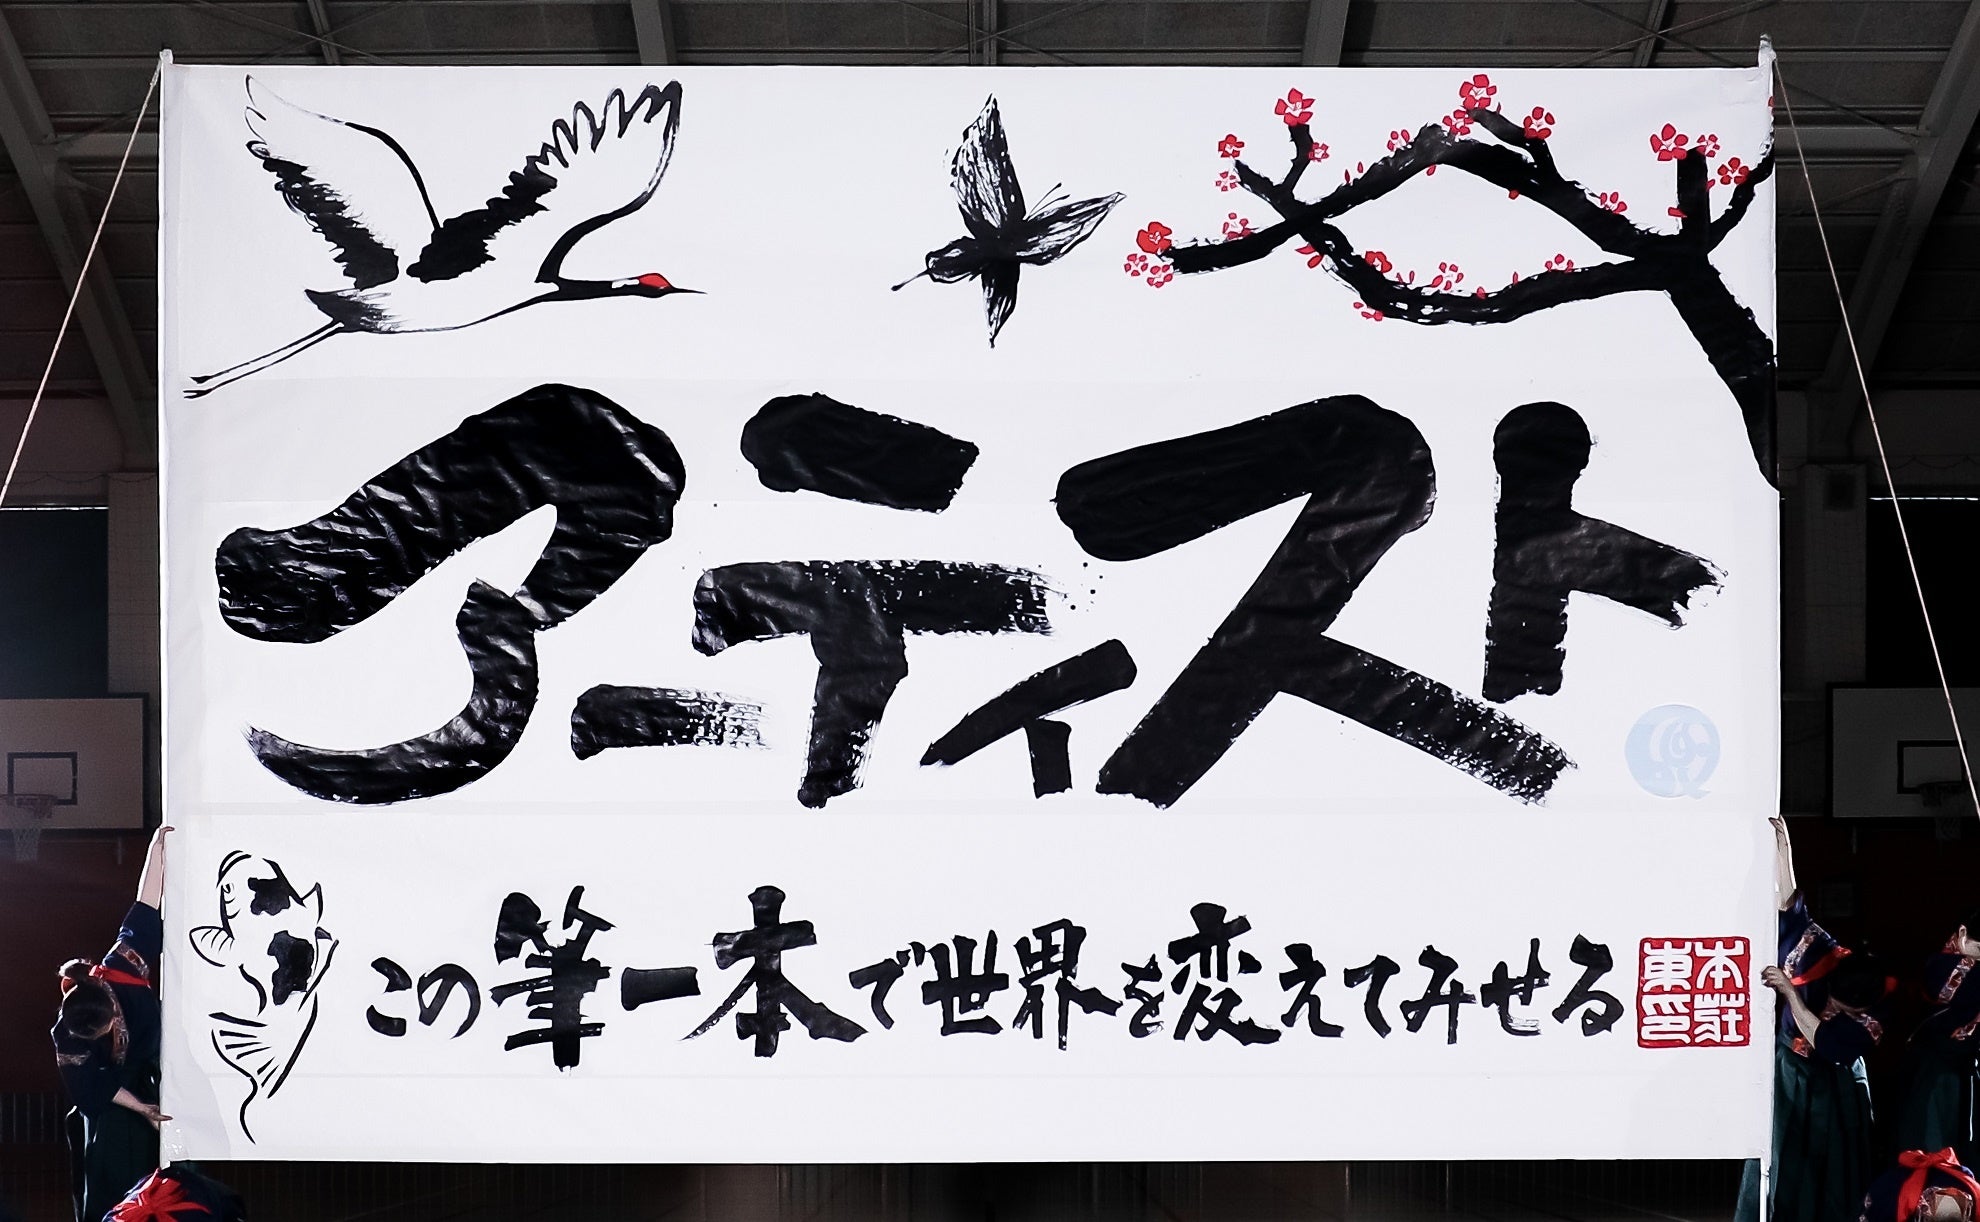 アーティスト
この筆一本で世界を変えてみせる
本荘東印